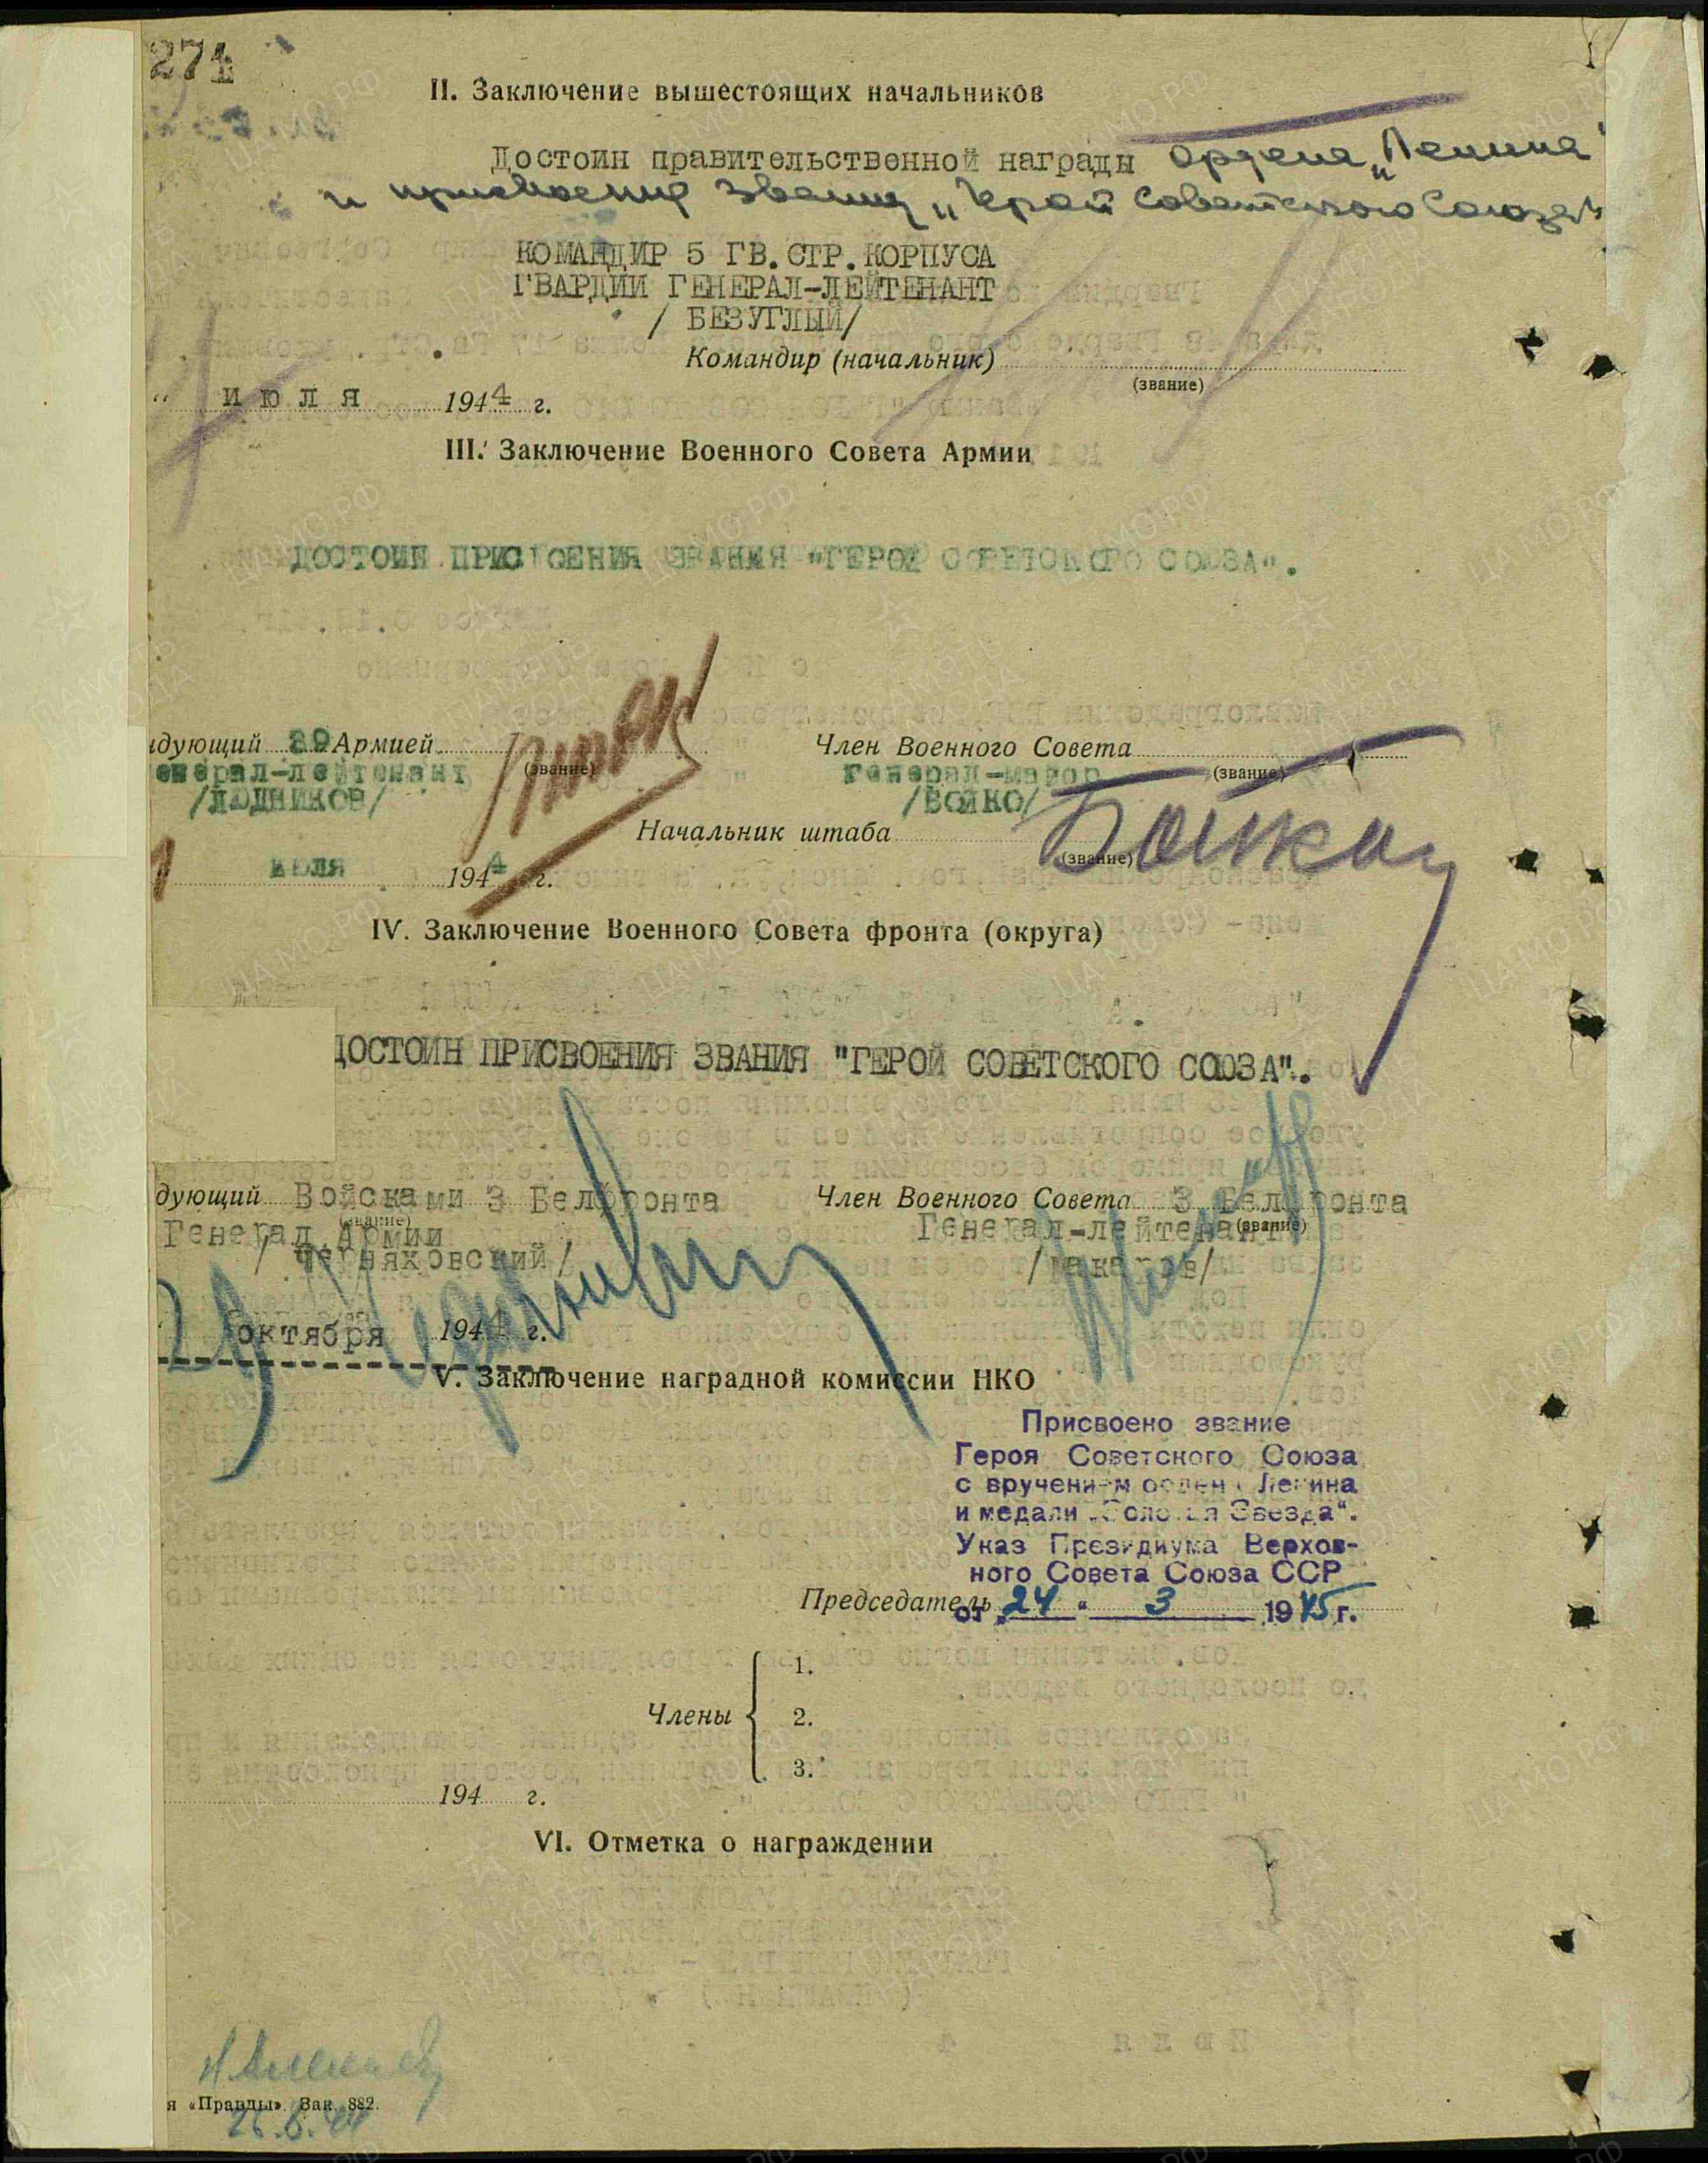 271
II. Заключение вышестоящих начальников
Достоин правительственной награды ордена „Ленина"
и присвоения звания „Герой Советского Союза"
КОМАНДИР 5 ГВ.СТР.КОРПУСА
ГВАРДИИ ГЕНЕРАЛ-ЛЕЙТЕНАНТ
/ БЕЗУГЛЫЙ/
Командир (начальник)
(звание)
" июля 1944 г.
III. Заключение Военного Совета Армии
ДОСТОИН ПРИСВОЕНИЯ ЗВАНИЯ "ГЕРОЙ СОВЕТСКОГО СОЮЗА".
дующий 39 Армией
(звание)
енерал-лейтенант
/ЛЮДНИКОВ/
Член Военного Совета
(звание)
генерал-майор
/БОЙКО/
Бойко
Начальник штаба
(звание)
июля 1944 г.
IV. Заключение Военного Совета фронта (округа)
ДОСТОИН ПРИСВОЕНИЯ ЗВАНИЯ "ГЕРОЙ СОВЕТСКОГО СОЮЗА".
дующий Войсками 3 Белфронта
(звание)
Генерал Армии
/ Черняховский/
Член Военного Совета 3 Белфронта
Генерал-лейтенант
(звание)
/Макаров/
октября 1944 г.
V. Заключение наградной комиссии НКО
Присвоено звание
Героя Советского Союза
с вручением ордена Ленина
и медали „Золотая Звезда".
Указ Президиума Верхов-
ного Совета Союза ССР
Председатель
от „24" 3 1945 г.
Члены
1.
2.
3.
194 г.
VI. Отметка о награждении
я «Правды». Зак. 882.